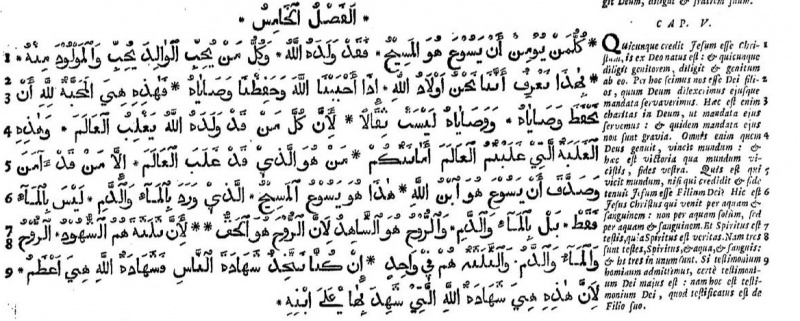 * الفصل الخامس *
1 * كل من يومن أن يسوع هو المسيح * فقد ولده الله * وكل من يحب الوالد يحب والمولود منه *
2 3 * بهذا نعرف أننا نحن أولاد الله * إذا أحببنا الله وحفظنا وصاياه * فهذه هي المحبة لله أن
4 نحفظ وصاياه * ووصاياه ليست ثقالا * لأن كل من قد ولده الله يغلب العالم * وهذه
5 الغلبة التي غلبتم العالم * من هو الذي قد غلب العالم * إلا من قد آمن
6 وصدق أن يسوع هو ابن الله * هذا هو يسوع المسيح * الذي ورد بالماء والدم * ليس بالماء
7 8 فقط * بل بالماء والدم * والروح هو الشاهد لأن الروح هو الحق ** لأن ثلثة هم الشهود * الروح
9 والماء والدم * والثلثة هم في واحد * ان كنا نتخذ شهادة الناس فشهادة الله هي أعظم *
لأن هذه هي شهادة الله التي شهد بها على ابنه *
CAP. V.
Quicunque credit Jesum esse Chri- 1
stum, is ex Deo natus est: & quicunque
diligit genitorem, diligit & genitum
ab eo. Per hoc scimus nos esse Dei fili- 2
os, quum Deum dilexerimus ejusque
mandata servaverimus. Hæc est enim 3
charitas in Deum, ut mandata ejus
servemus: & quidem mandata ejus
non sunt gravia. Omnis enim quem 4
Deus genuit, vincit mundum: &
hæc est victoria qua mundum vi-
cistis, fides vestra. Quis est qui 5
vicit mundum, nisi qui credidit & fid-
tenuit Jesum esse Filium Dei? Hic est 6
Jesus Christus qui venit per aquam &
sanguinem: non per aquam solùm, sed
per aquam & sanguinem. Et Spiritus est 7
testis, quia Spiritus est veritas. Nam tres 8
sunt testes, Spiritus, & aqua, & sanguis:
& hi tres in unum sunt. Si testimonium 9
hominum admittimus, certè testimoni-
um Dei majus est: nam hoc est testi-
monium Dei, quod testificatus est de
Filio suo.